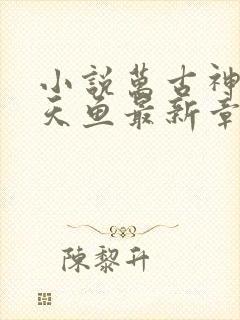 小説萬古神
天魚最新章
陳黎升